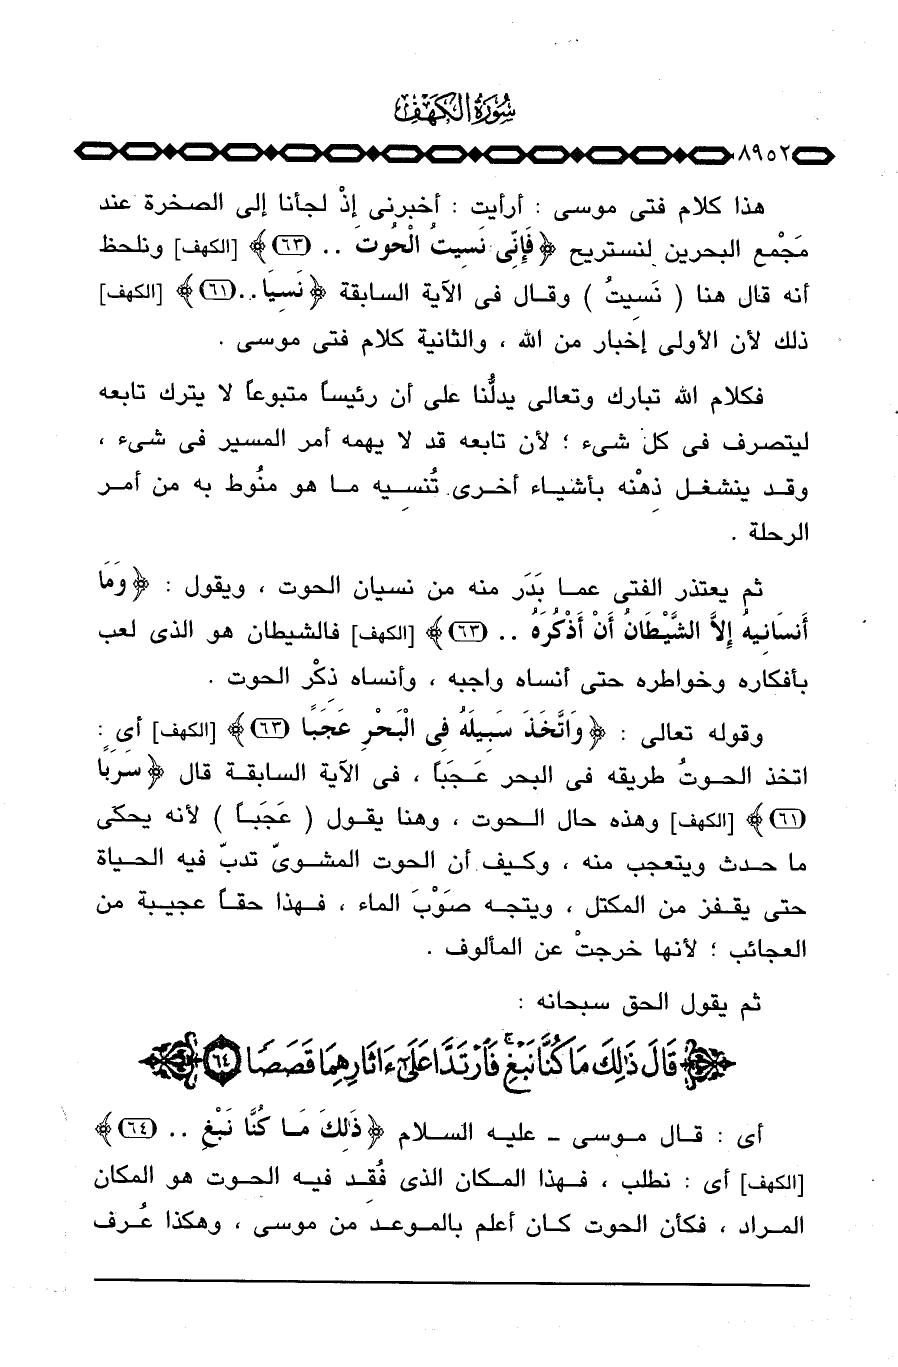 سُورَةُ الكَهْفِ
٨٩٥٢
هذا كلام فتى موسى : أرأيت : أخبرنى إذْ لجأنا إلى الصخرة عند
مَجْمع البحرين لنستريح ﴿فَإِنِّى نَسِيتُ الْحُوتَ .. (٦٣)﴾ [الكهف] ونلحظ
أنه قال هنا ( نَسيتُ ) وقال فى الآية السابقة ﴿نَسِيَا ..(٦١)﴾ [الكهف]
ذلك لأن الأولى إخبار من الله ، والثانية كلام فتى موسى .
فكلام الله تبارك وتعالى يدلُّنا على أن رئيساً متبوعاً لا يترك تابعه
ليتصرف فى كل شىء ؛ لأن تابعه قد لا يهمه أمر المسير فى شىء ،
وقد ينشغل ذهْنه بأشياء أخرى تُنسيه ما هو منُوط به من أمر
الرحلة .
ثم يعتذر الفتى عما بَدَر منه من نسيان الحوت ، ويقول : ﴿وَمَا
أَنسَانِيهُ إِلاَّ الشَّيْطَانُ أَنْ أَذْكُرَهُ .. (٦٣)﴾ [الكهف] فالشيطان هو الذى لعب
بأفكاره وخواطره حتى أنساه واجبه ، وأنساه ذكْر الحوت .
وقوله تعالى : ﴿وَاتَّخَذَ سَبِيلَهُ فِى الْبَحْرِ عَجَبًا (٦٣)﴾ [الكهف] أى :
اتخذ الحوتُ طريقه فى البحر عَجَباً ، فى الآية السابقة قال ﴿سَرَبًا
(٦١)﴾ [الكهف] وهذه حال الحوت ، وهنا يقول ( عَجَباً ) لأنه يحكى
ما حدث ويتعجب منه ، وكيف أن الحوت المشوىّ تدبّ فيه الحياة
حتى يقفز من المكتل ، ويتجه صَوْبَ الماء ، فهذا حقاً عجيبة من
العجائب ؛ لأنها خرجتْ عن المألوف .
ثم يقول الحق سبحانه :
قَالَ ذَٰلِكَ مَا كُنَّا نَبْغِ فَارْتَدَّا عَلَىٰ ءَاثَارِهِمَا قَصَصًا ٦٤
أى : قال موسى - عليه السلام ﴿ذَلِكَ مَا كُنَّا نَبْغِ .. (٦٤)﴾
[الكهف] أى : نطلب ، فهذا المكان الذى فُقد فيه الحوت هو المكان
المراد ، فكأن الحوت كان أعلم بالموعد من موسى ، وهكذا عُرف